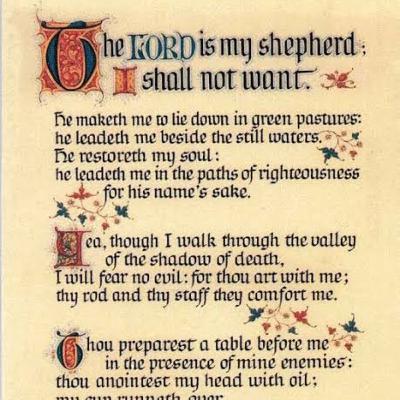 The LORD is my shepherd;
I shall not want.
He maketh me to lie down in green pastures:
he leadeth me beside the still waters.
He restoreth my soul:
he leadeth me in the paths of righteousness
for his name's sake.
Yea, though I walk through the valley
of the shadow of death,
I will fear no evil: for thou art with me;
thy rod and thy staff they comfort me.
Thou preparest a table before me
in the presence of mine enemies:
thou anointest my head with oil;
my cup runneth over.